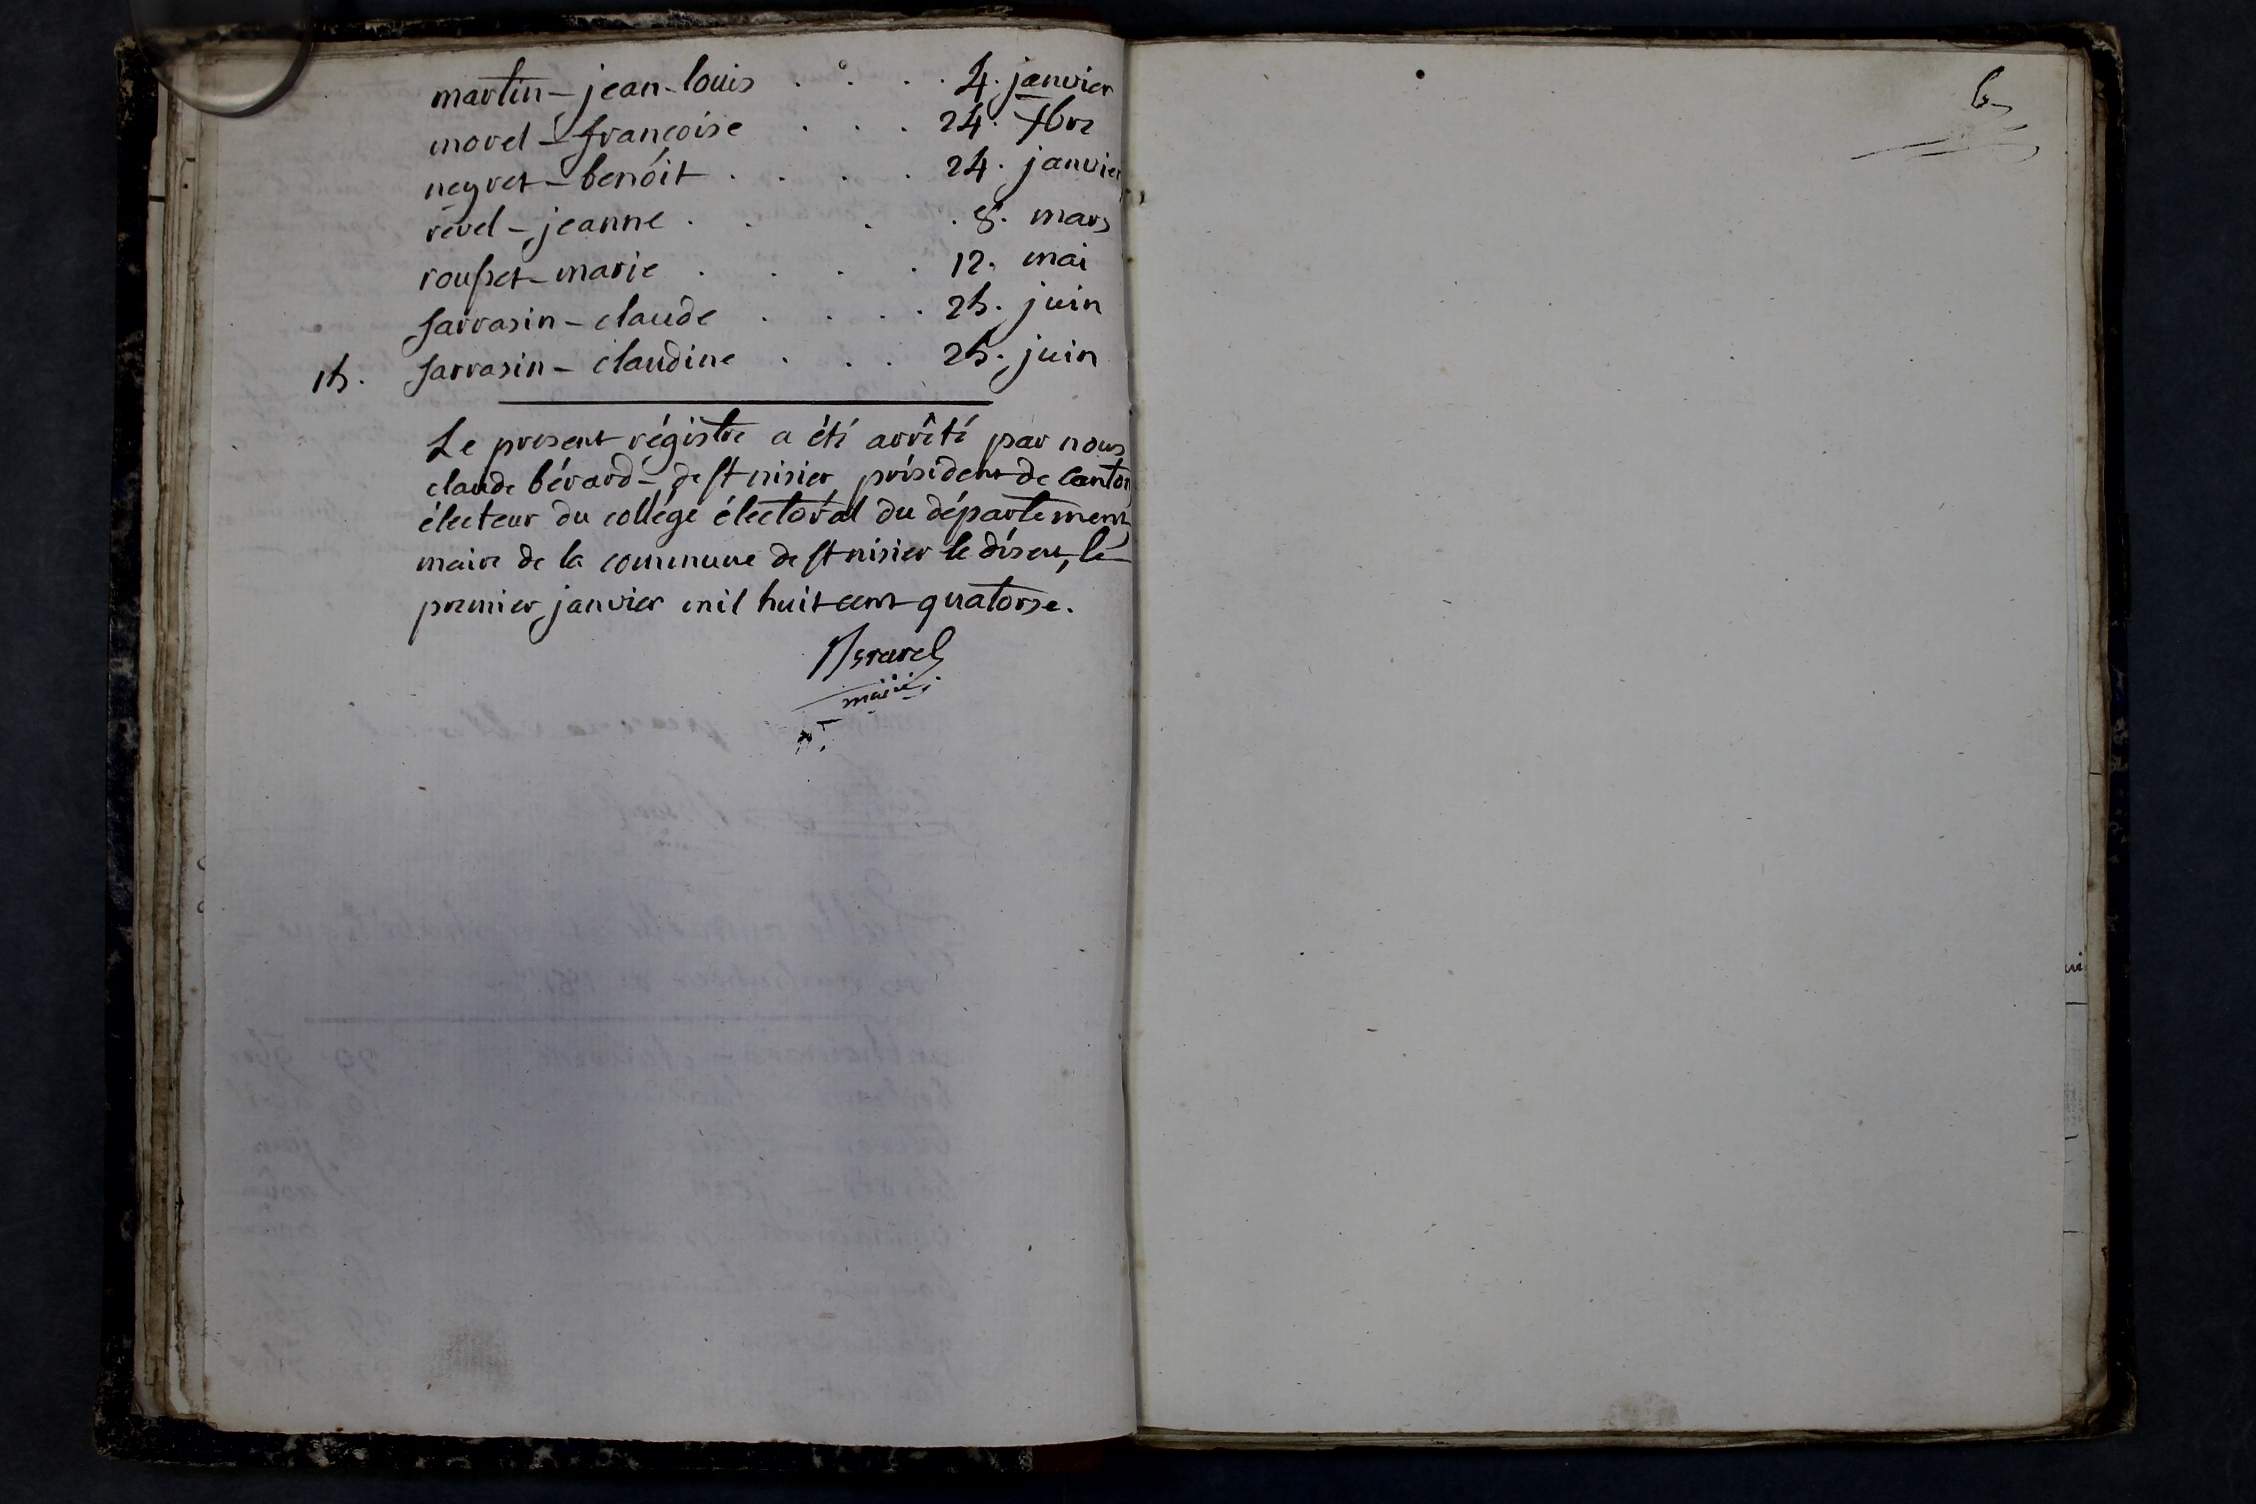 martin - jean-louis . . . . 4. janvier
morel - françoise . . . 24. 7bre
neyret - benoit . . . . 24. janvier
revel - jeanne . . . . 8. mars
rousset - marie . . . . 12. mai
sarrasin - claude . . . . 25. juin
15. sarrasin - claudine . . . 25. juin
Le present régistre a été arrêté par nous
claude bérard - de st nisier président de canton
électeur du collége électoral du département
maire de la commune de st nisier le désert, le
premier janvier mil huit cent quatorze.
maire